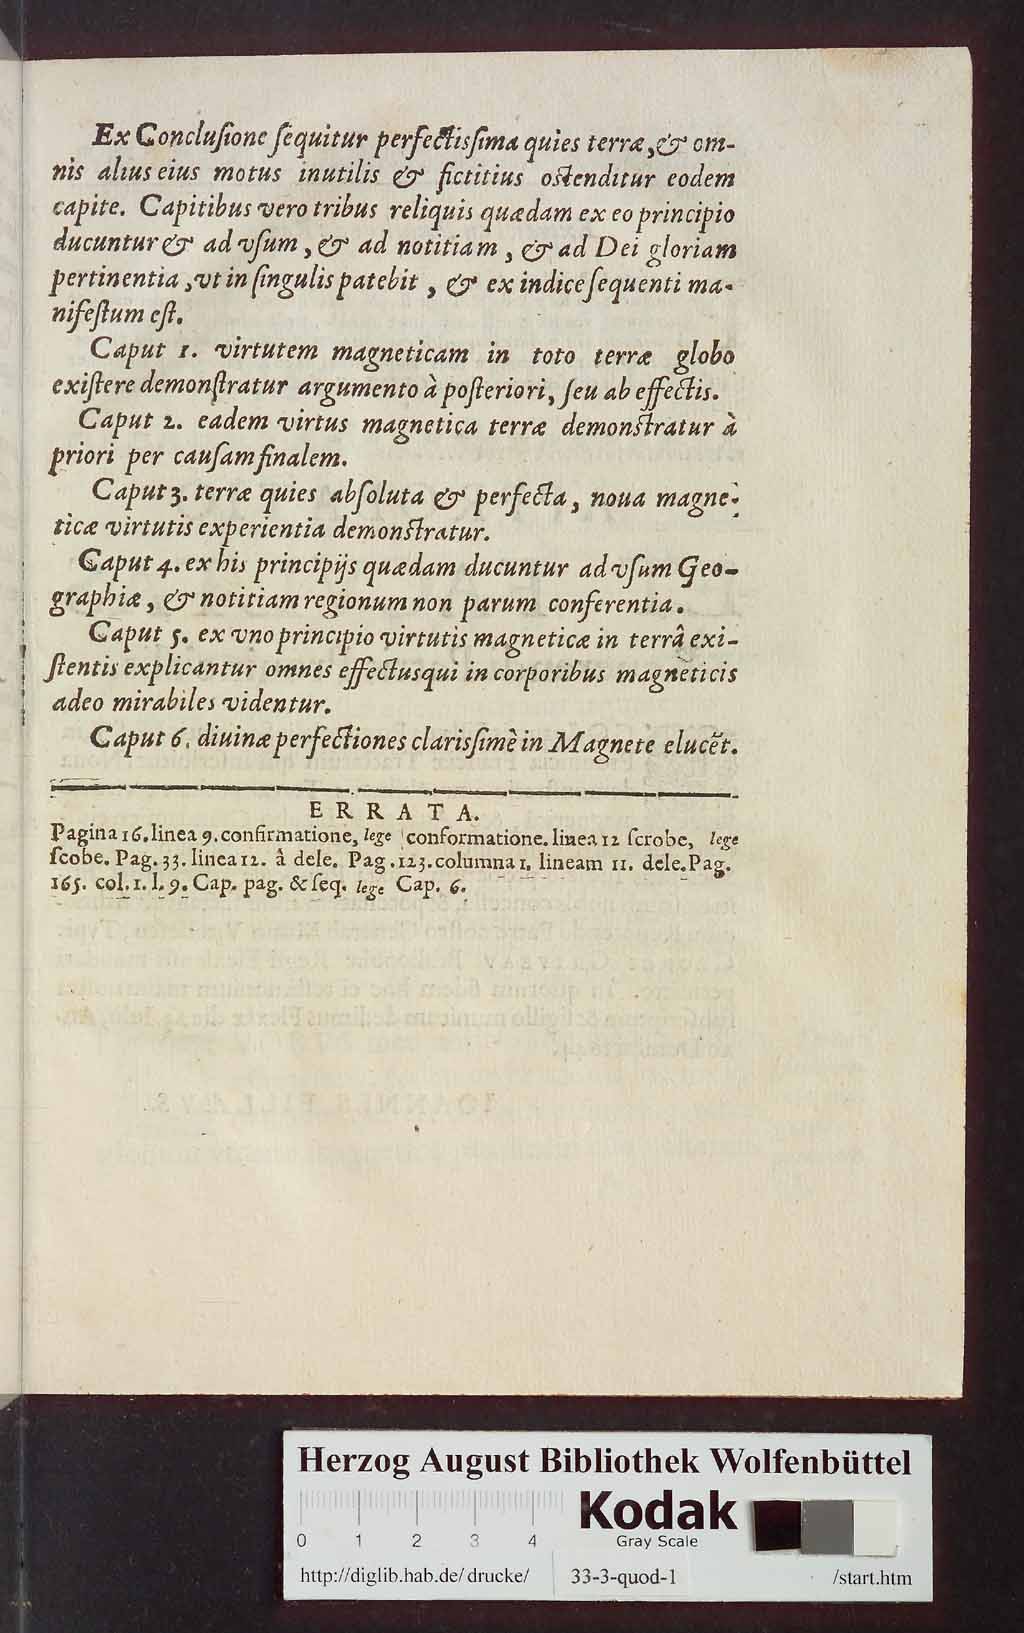 Ex Conclusione sequitur perfectissima quies terræ, & om-
nis alius eius motus inutilis & fictitius ostenditur eodem
capite. Capitibus vero tribus reliquis quædam ex eo principio
ducuntur & ad vsum, & ad notitiam, & ad Dei gloriam
pertinentia, vt in singulis patebit, & ex indice sequenti ma-
nifestum est.
Caput 1. virtutem magneticam in toto terræ globo
existere demonstratur argumento à posteriori, seu ab effectis.
Caput 2. eadem virtus magnetica terræ demonstratur à
priori per causam finalem.
Caput 3. terræ quies absoluta & perfecta, noua magne-
ticæ virtutis experientia demonstratur.
Caput 4. ex his principijs quædam ducuntur ad vsum Geo-
graphiæ, & notitiam regionum non parum conferentia.
Caput 5. ex vno principio virtutis magneticæ in terrâ exi-
stentis explicantur omnes effectus qui in corporibus magneticis
adeo mirabiles videntur.
Caput 6. diuinæ perfectiones clarissimè in Magnete elucēt.
ERRATA.
Pagina 16. linea 9. confirmatione, lege conformatione. linea 12 scrobe, lege
scobe. Pag. 33. linea 12. â dele. Pag. 123. columna 1. lineam 11. dele. Pag.
165. col. 1. l. 9. Cap. pag. & seq. lege Cap. 6.
Herzog August Bibliothek Wolfenbüttel
0 1 2 3 4
Kodak
Gray Scale
http://diglib.hab.de/drucke/ 33-3-quod-1 /start.htm